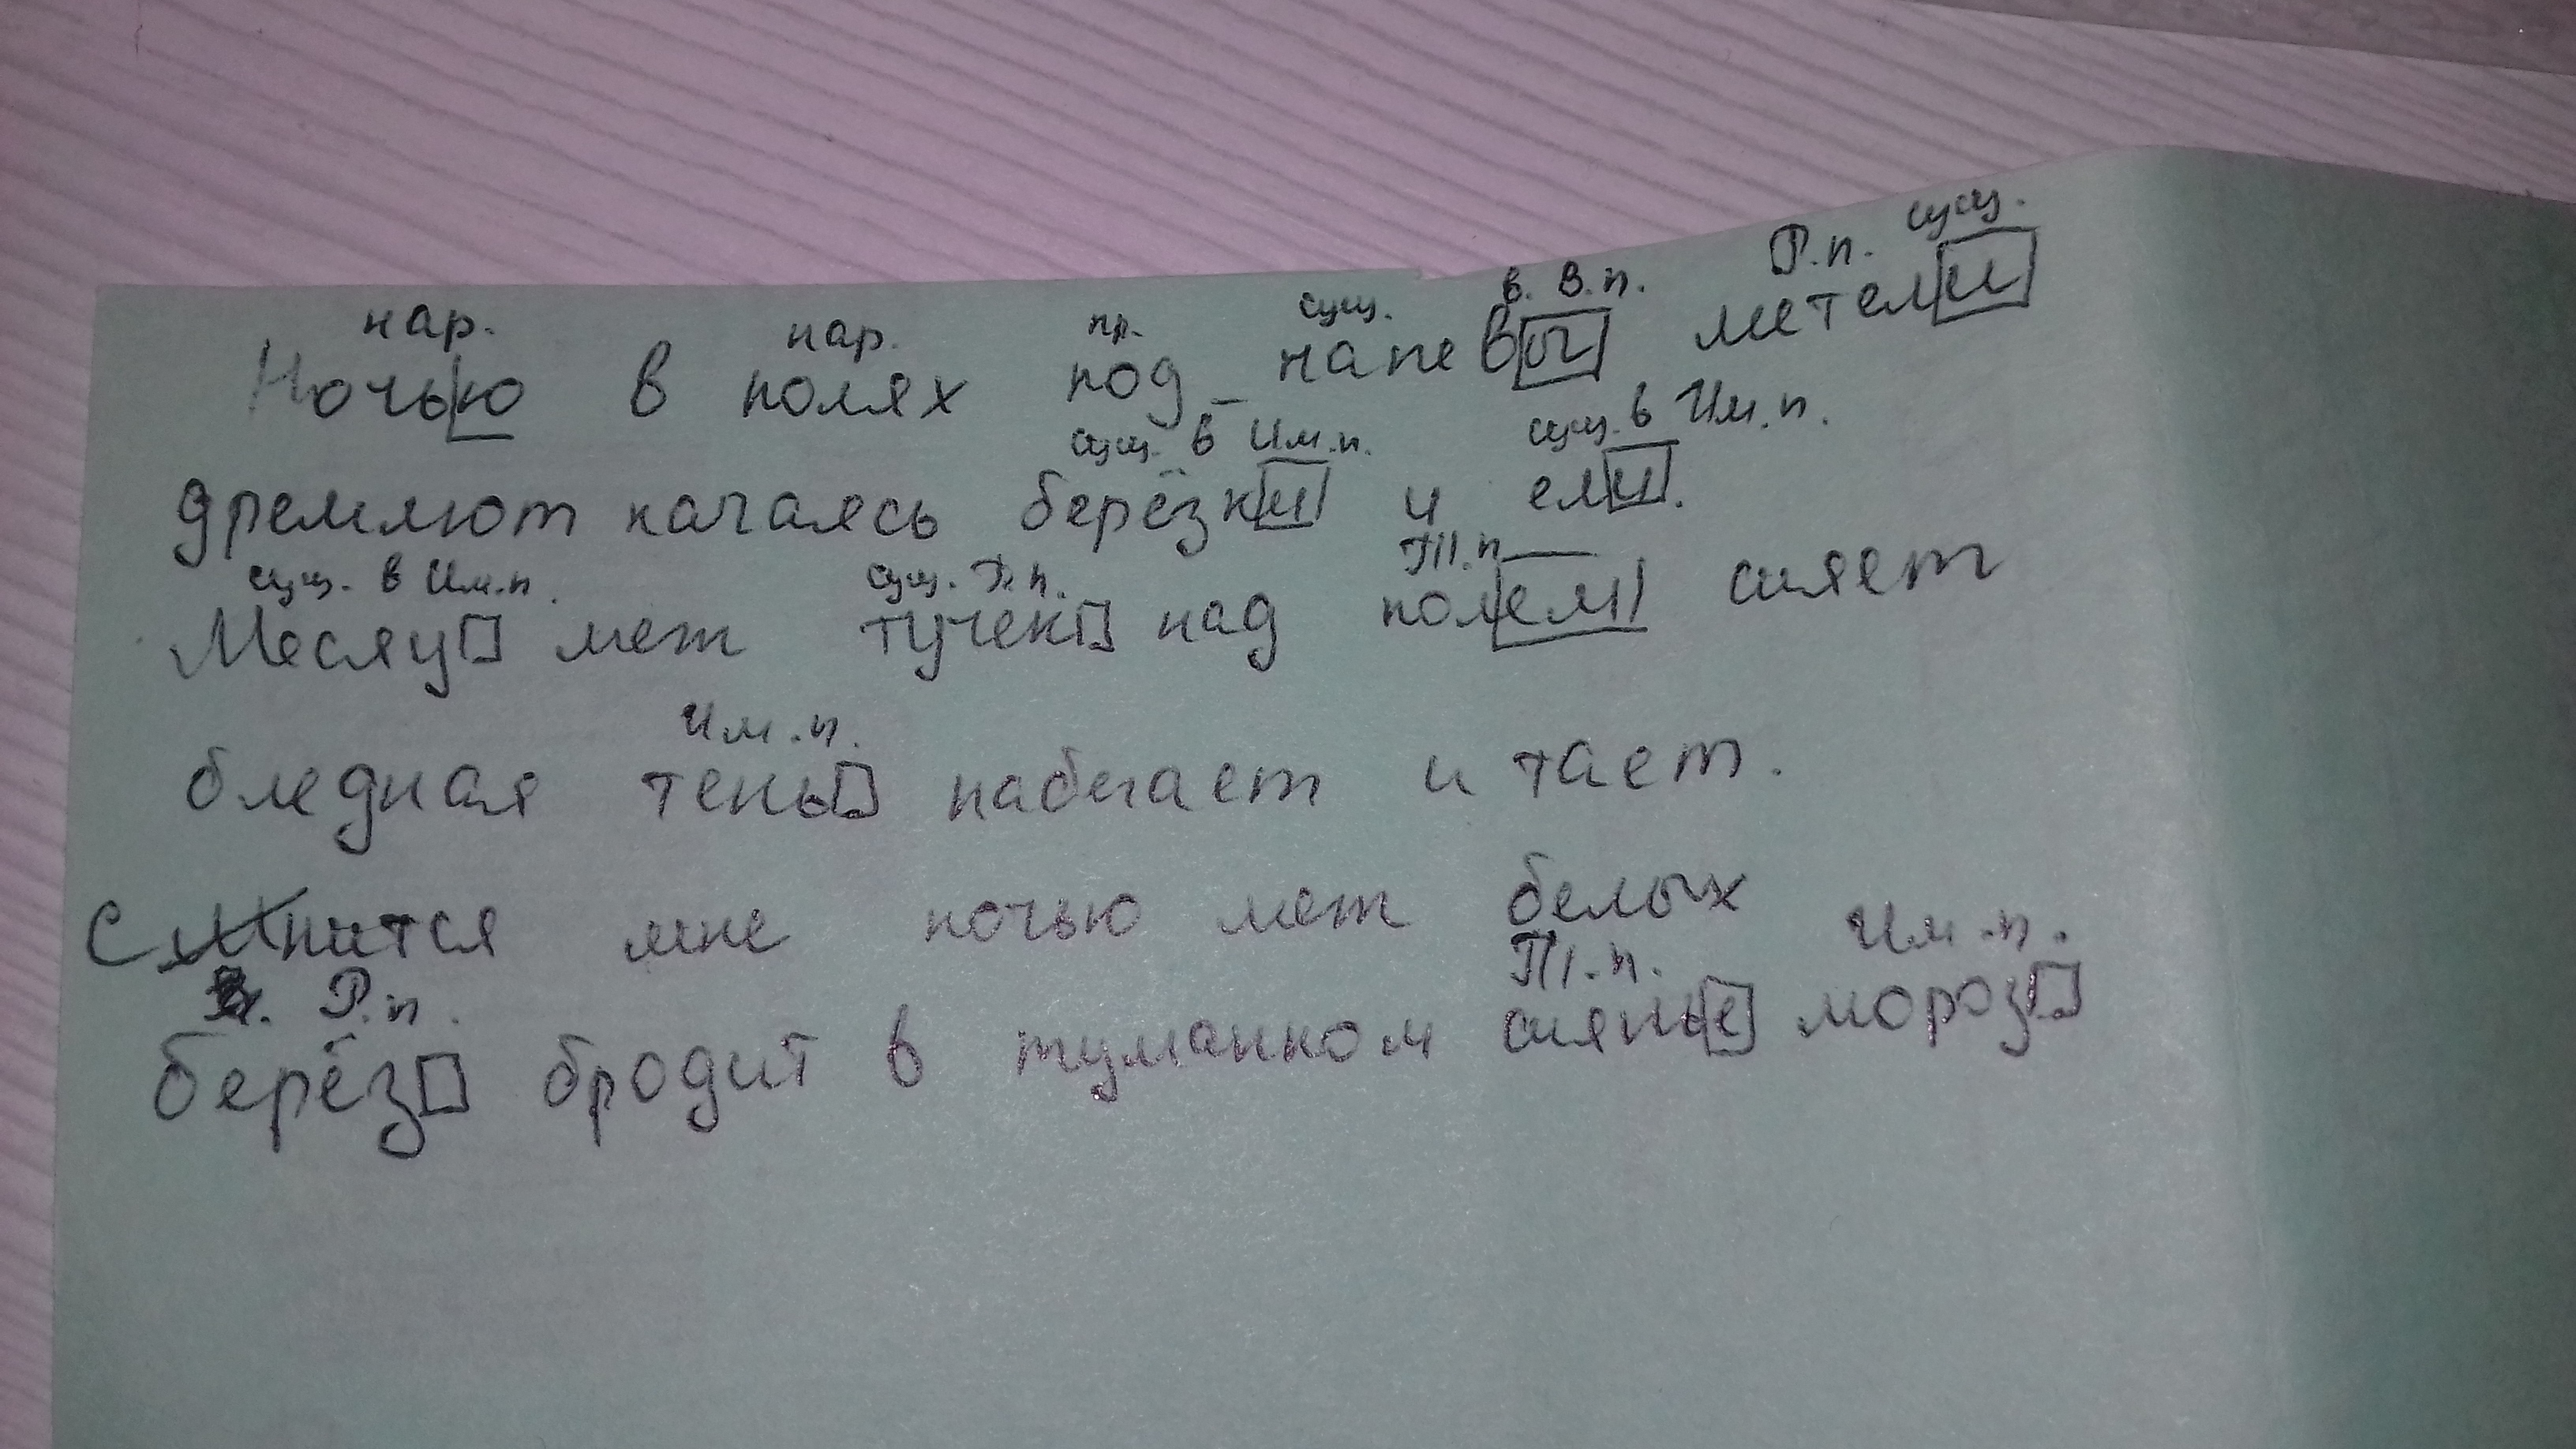 нар. нар. пр. сущ. в. В.п. Р.п. сущ.
Ночью в полях под напевы метели
сущ. в Им.п. сущ. в Им.п.
дремлют качаясь берёзки и ели.
сущ. в Им.п. сущ. Р.п. Тп.п
Месяц меж тучек над полем сияет
Им.п.
бледная тень набегает и тает.
Снится мне ночью меж белых
Р.п. Пп.п. Им.п.
берёз бродит в туманном сиянье мороз